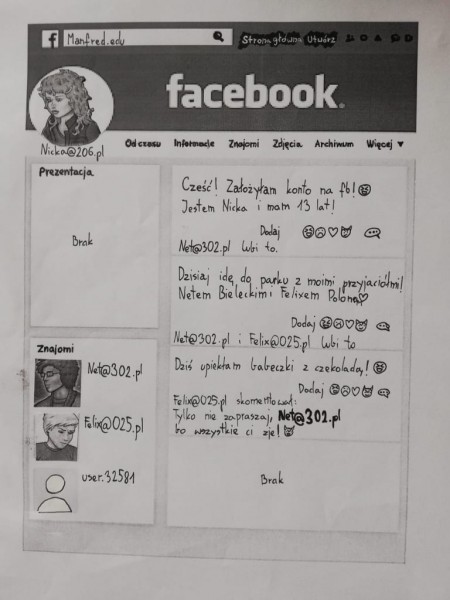 f Manfred.edu Strona główna Utwórz
facebook
Nicka@206.pl
Od czasu Informacje Znajomi Zdjęcia Archiwum Więcej ▼
Prezentacja
Brak
Cześć! Założyłam konto na fb!
Jestem Nicka i mam 13 lat!
Dodaj
Net@302.pl Lubi to.
Dzisiaj idę do parku z moimi przyjaciółmi!
Netem Bieleckim i Felixem Poloną♡
Dodaj
Net@302.pl i Felix@025.pl Lubi to
Dziś upiekłam babeczki z czekoladą!
Dodaj
Felix@025.pl skomentował:
Tylko nie zapraszaj, Net@302.pl
bo wszystkie ci zje!
Brak
Znajomi
Net@302.pl
Felix@025.pl
user.32581